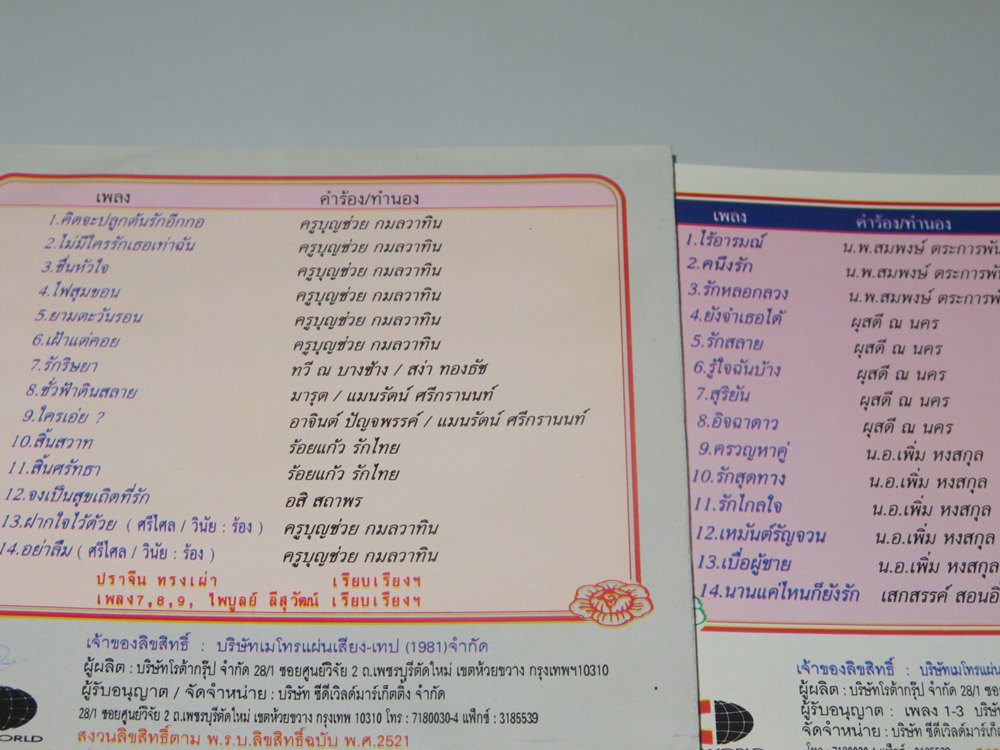 เพลง คำร้อง/ทำนอง
1.คิดจะปลูกต้นรักอีกกอ ครูบุญช่วย กมลวาทิน
2.ไม่มีใครรักเธอเท่าฉัน ครูบุญช่วย กมลวาทิน
3.ชื่นหัวใจ ครูบุญช่วย กมลวาทิน
4.ไฟสุมขอน ครูบุญช่วย กมลวาทิน
5.ยามตะวันรอน ครูบุญช่วย กมลวาทิน
6.เฝ้าแต่คอย ครูบุญช่วย กมลวาทิน
7.รักริษยา ทวี ณ บางช้าง / สง่า ทองธัช
8.ชั่วฟ้าดินสลาย มารุต / แมนรัตน์ ศรีกรานนท์
9.ใครเอ่ย ? อาจินต์ ปัญจพรรค์ / แมนรัตน์ ศรีกรานนท์
10.สิ้นสวาท ร้อยแก้ว รักไทย
11.สิ้นศรัทธา ร้อยแก้ว รักไทย
12.จงเป็นสุขเถิดที่รัก อสิ สถาพร
13.ฝากใจไว้ด้วย ( ศรีไศล / วินัย : ร้อง ) ครูบุญช่วย กมลวาทิน
14.อย่าลืม ( ศรีไศล / วินัย : ร้อง ) ครูบุญช่วย กมลวาทิน
ปราจีน ทรงเผ่า เรียบเรียงฯ
เพลง7,8,9, ไพบูลย์ ลีสุวัฒน์ เรียบเรียงฯ
เจ้าของลิขสิทธิ์ : บริษัทเมโทรแผ่นเสียง-เทป (1981)จำกัด
ผู้ผลิต : บริษัทโรต้ากรุ๊ป จำกัด 28/1 ซอยศูนย์วิจัย 2 ถ.เพชรบุรีตัดใหม่ เขตห้วยขวาง กรุงเทพฯ10310
ผู้รับอนุญาต / จัดจำหน่าย : บริษัท ซีดีเวิลด์มาร์เก็ตติ้ง จำกัด
28/1 ซอยศูนย์วิจัย 2 ถ.เพชรบุรีตัดใหม่ เขตห้วยขวาง กรุงเทพ 10310 โทร : 7180030-4 แฟ็กซ์ : 3185539
สงวนลิขสิทธิ์ตาม พ.ร.บ.ลิขสิทธิ์ฉบับ พ.ศ.2521
เพลง คำร้อง/ทำนอง
1.ไร้อารมณ์ น.พ.สมพงษ์ ตระการพัน
2.คนึงรัก น.พ.สมพงษ์ ตระการพัน
3.รักหลอกลวง น.พ.สมพงษ์ ตระการพั
4.ยังจำเธอได้ ผุสดี ณ นคร
5.รักสลาย ผุสดี ณ นคร
6.รู้ใจฉันบ้าง ผุสดี ณ นคร
7.สุริยัน ผุสดี ณ นคร
8.อิจฉาดาว ผุสดี ณ นคร
9.ครวญหาคู่ น.อ.เพิ่ม หงสกุล
10.รักสุดทาง น.อ.เพิ่ม หงสกุล
11.รักไกลใจ น.อ.เพิ่ม หงสกุล
12.เหมันต์รัญจวน น.อ.เพิ่ม หงสกุล
13.เบื่อผู้ชาย น.อ.เพิ่ม หงสกุล
14.นานแค่ไหนก็ยังรัก เสกสรรค์ สอนอิ
เจ้าของลิขสิทธิ์ : บริษัทเมโทรแผ่น
ผู้ผลิต : บริษัทโรต้ากรุ๊ป จำกัด 28/1 ซอย
ผู้รับอนุญาต : เพลง 1-3 บริษั
จัดจำหน่าย : บริษัท ซีดีเวิลด์มาร์เก็ต